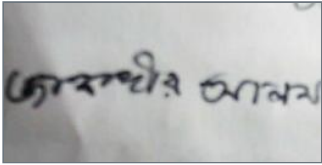 জাহাঙ্গীর আলম